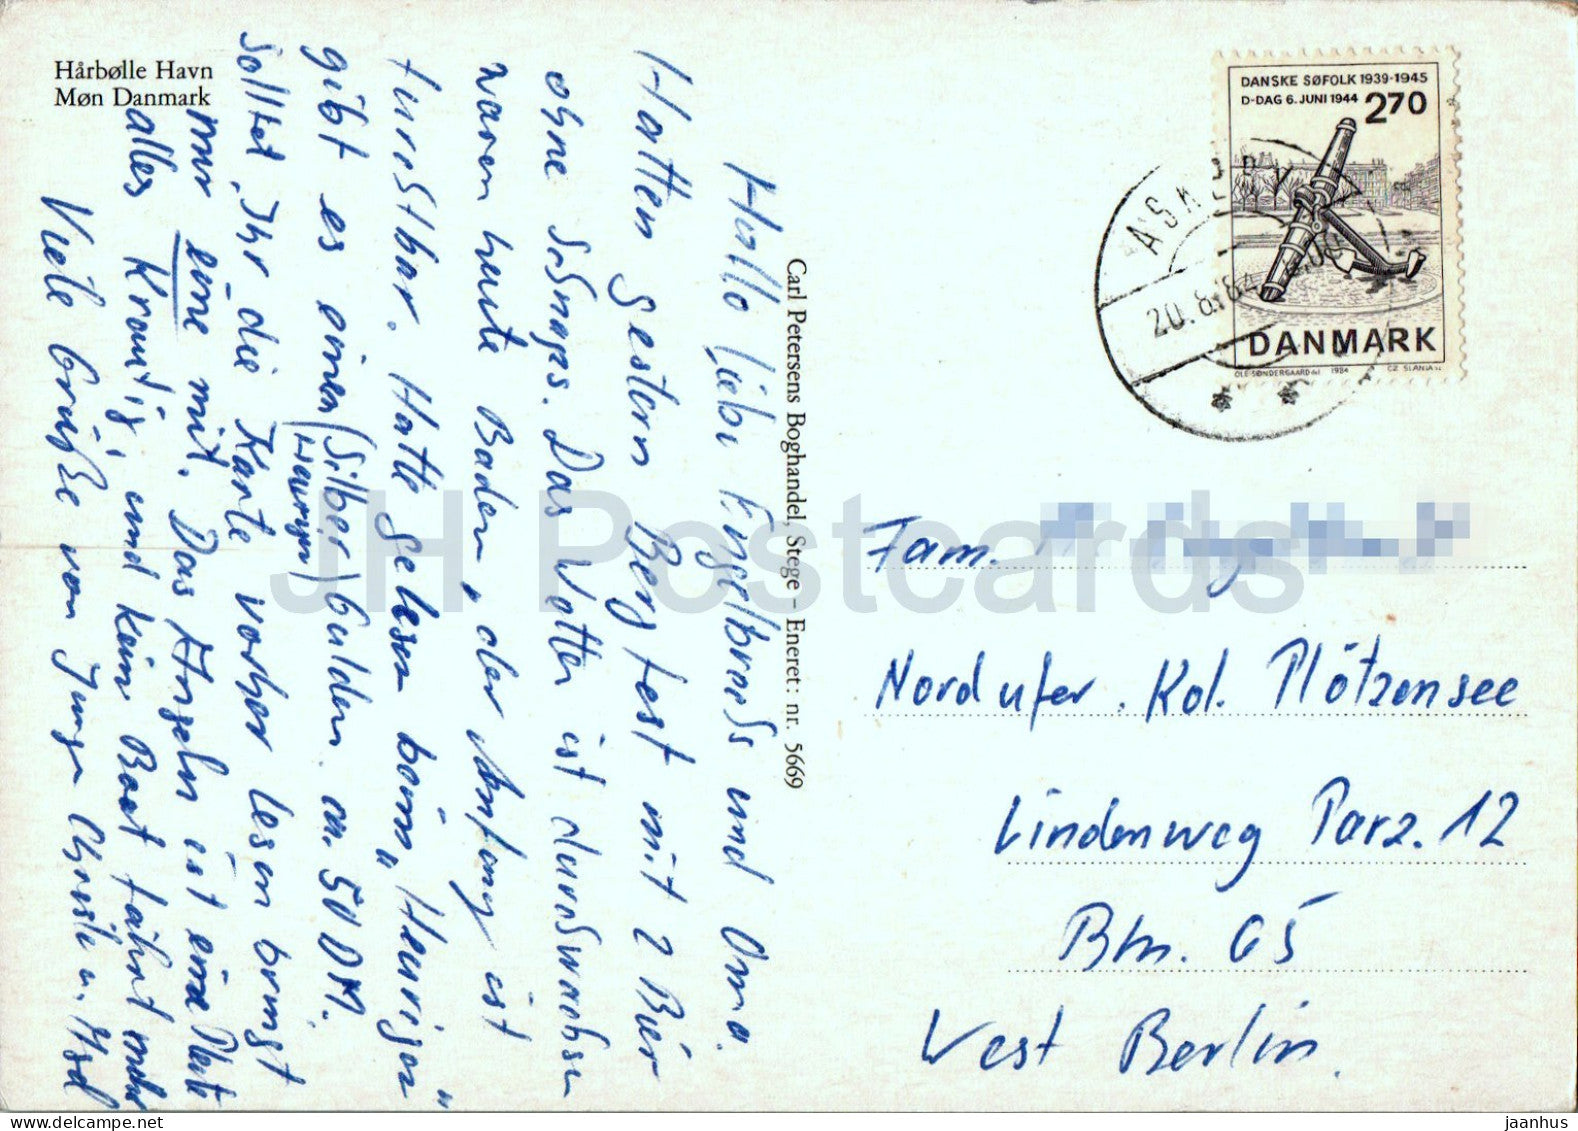 Hårbølle Havn
Møn Danmark
Hallo liebe Engelbrechts und Oma.
Hatten gestern Bergfest mit 2 Bier
ohne Schnaps. Das Wetter ist durchwachsen
waren heute Baden, der Anfang ist
furchtbar. Hatte gelesen beim „Heurigen"
gibt es einen (Silber) Gulden ca. 50 DM.
solltet Ihr die Karte vorher lesen bringt
mir eine mit. Das Angeln ist eine Pleite
alles Krautig, und kein Boot fährt
Viele Grüße von
Carl Petersens Boghandel, Stege – Eneret: nr. 5669
DANSKE SØFOLK 1939-1945
D-DAG 6. JUNI 1944 270
DANMARK
OLE SØNDERGAARD del 1984 CZ SLANIA sc
20.8.84
Fam.
Nordufer. Kol. Plötzensee
Lindenweg Parz. 12
Bln. 65
West Berlin.
JH Postcards
delcampe.net
jaanhus